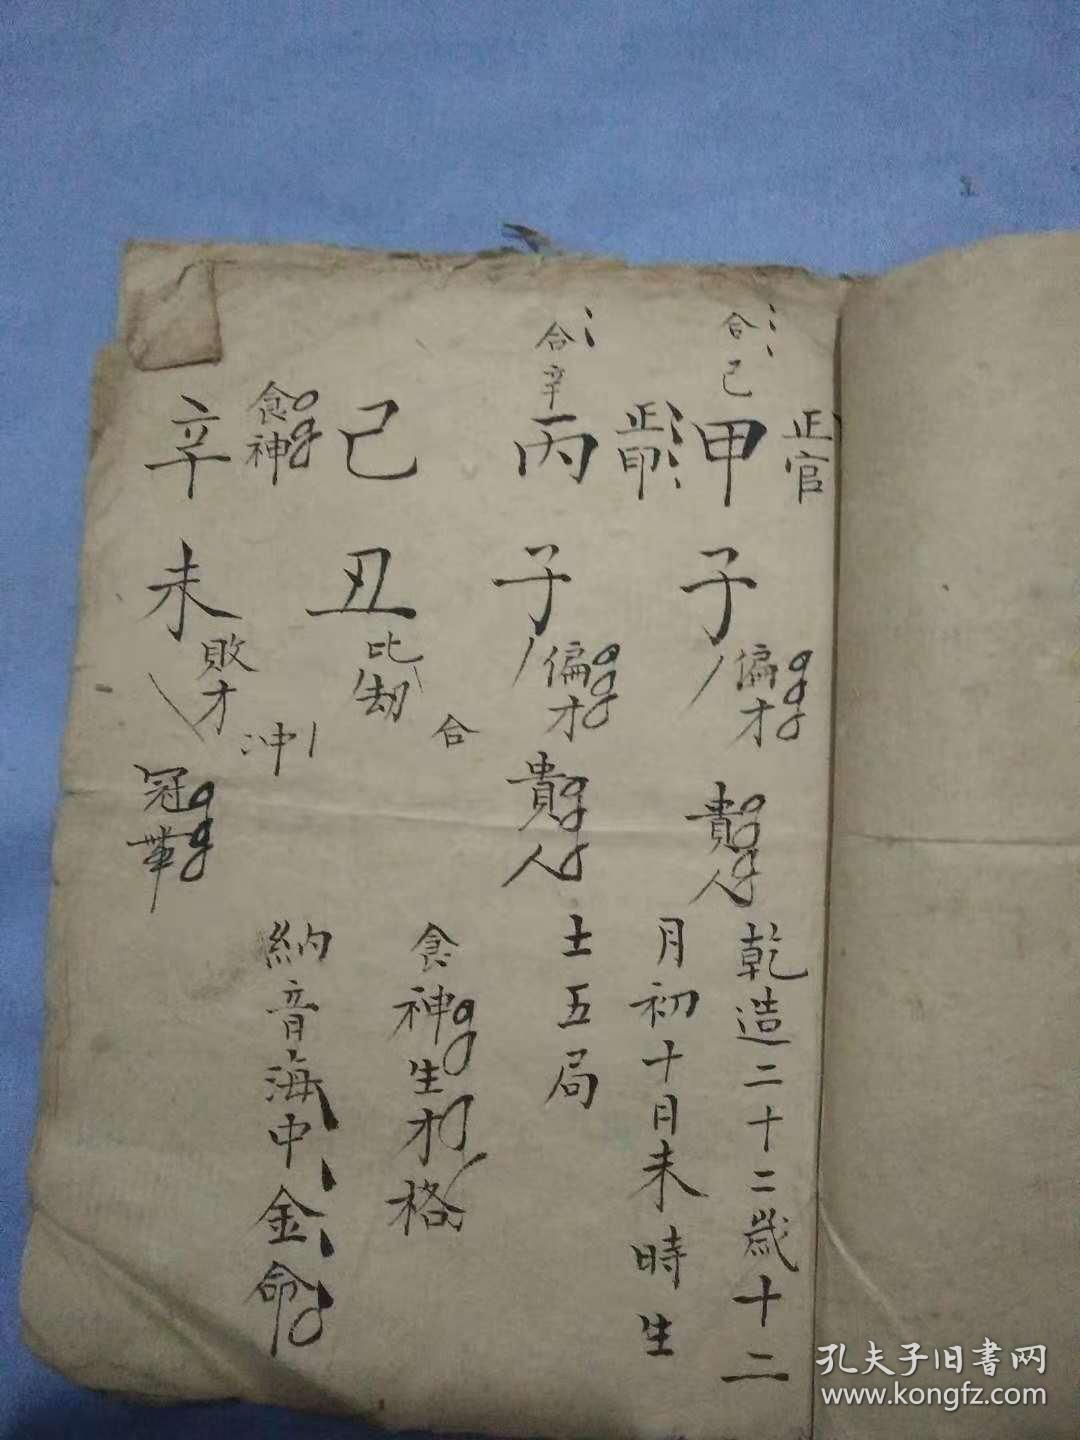 正官
合己
甲子
偏才
貴人
正印
合辛
丙子
偏才
貴人
己丑
比刼
合
食神
辛未
敗才
冲
冠
華
乾造二十二歲十二
月初十日未時生
土五局
食神生才格
納音海中金命
孔夫子旧書网
www.kongfz.com